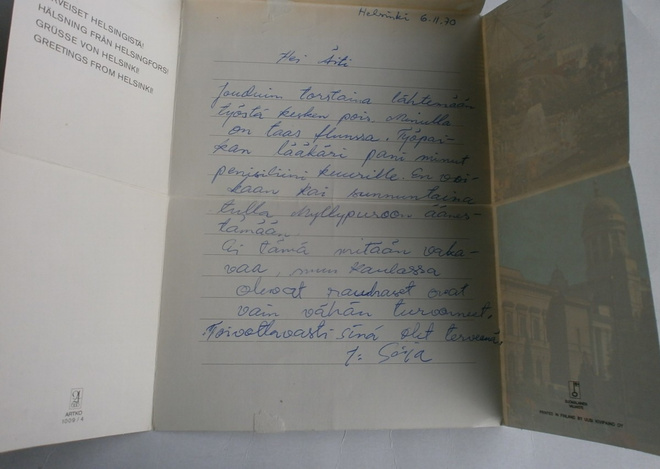 TERVEISET HELSINGISTÄ!
HÄLSNING FRÅN HELSINGFORS!
GRÜSSE VON HELSINKI!
GREETINGS FROM HELSINKI!
Helsinki 6.11.70
Hei Äiti
Jouduin torstaina lähtemään
työstä kesken pois. Minulla
on taas flunssa. Työpai-
kan lääkäri pani minut
penisiliini kuurille. En voi-
kaan kai sunnuntaina
tulla Myllypuroon äänes-
tämään.
Ei tämä mitään vaka-
vaa, mun kaulassa
olevat rauhaset ovat
vain vähän turvonneet.
Toivottavasti sinä olet terveenä,
T: Seija
ARTKO
1006/4